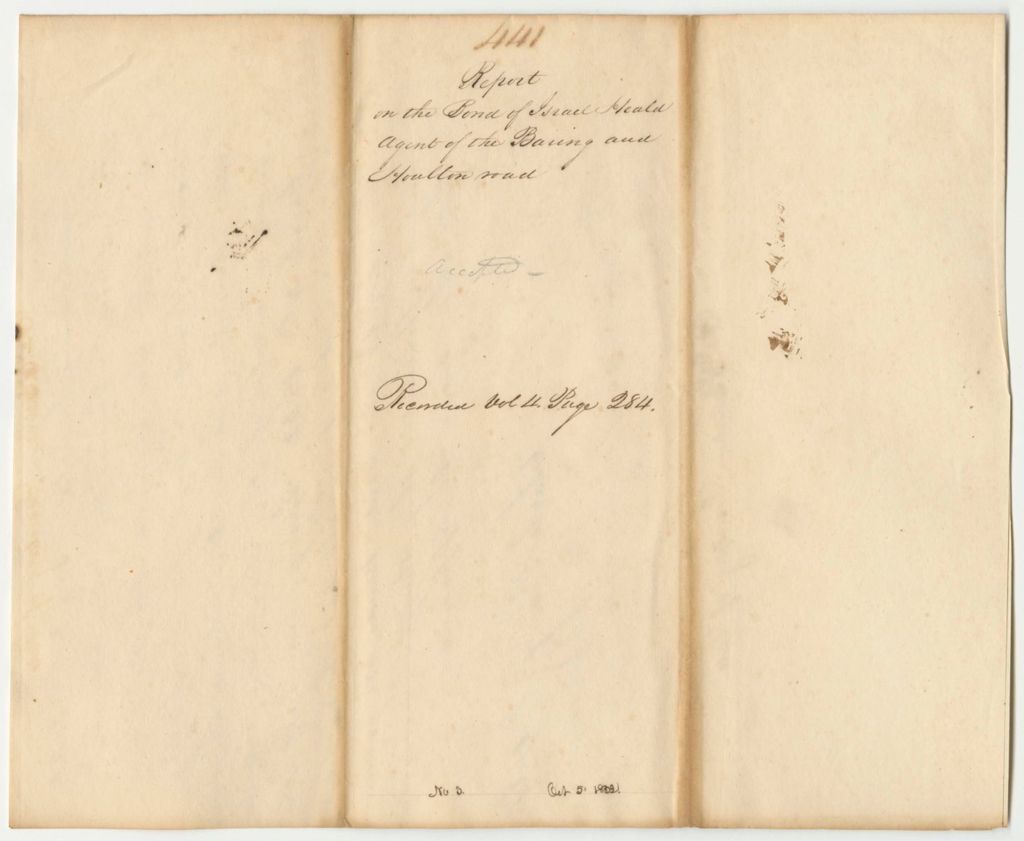 441
Report
on the Bond of Israel Heald
Agent of the Baring and
Houlton road
Accepted -
Recorded Vol 4. Page 284.
No 3. Oct 5.